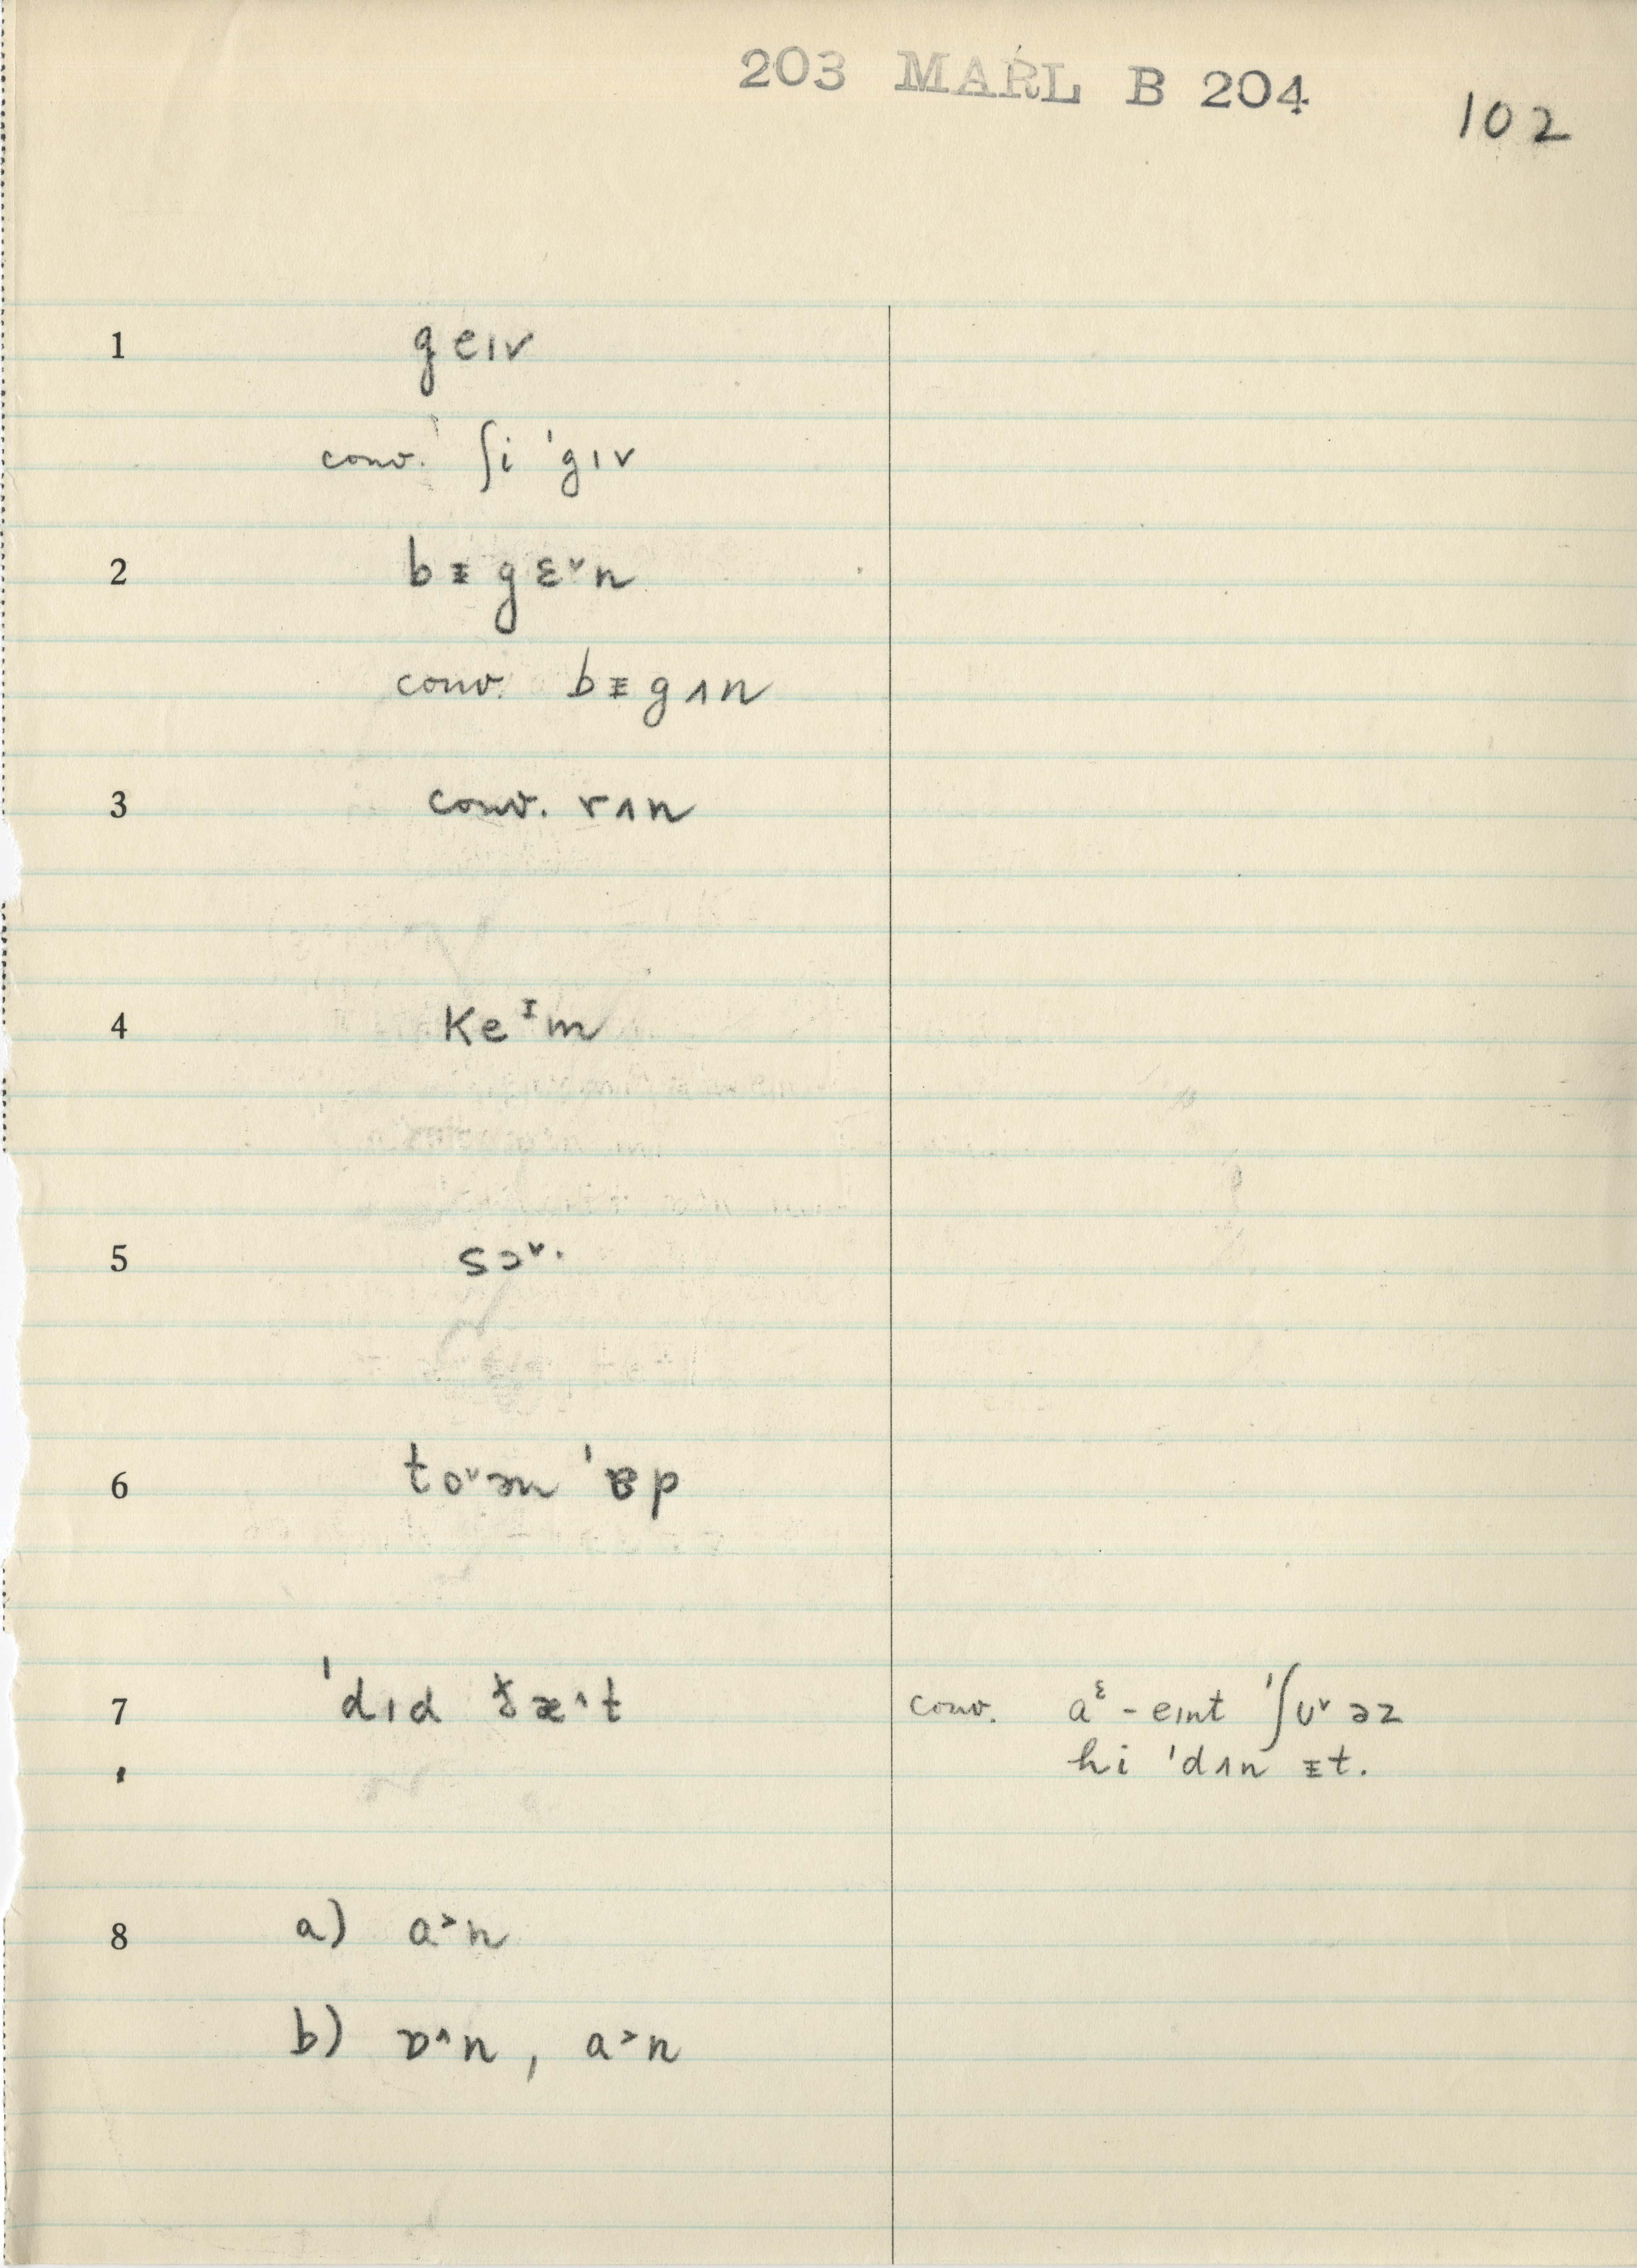 203 MARL B 204
102
1 geɪv
conv. ʃi ˈgɪv
2 bᵻgɛ˅n
conv. bᵻgʌn
3 conv. rʌn
4 keᴵm
5 sɔ˅·
6 to˅əm ˈɐp
7 ˈdɪd ðæ˄t conv. aᵋ-eɪnt ˈʃʊ˅əz
hi ˈdʌn ᵻt.
8 a) a˃n
b) ɒ˄n, a˃n